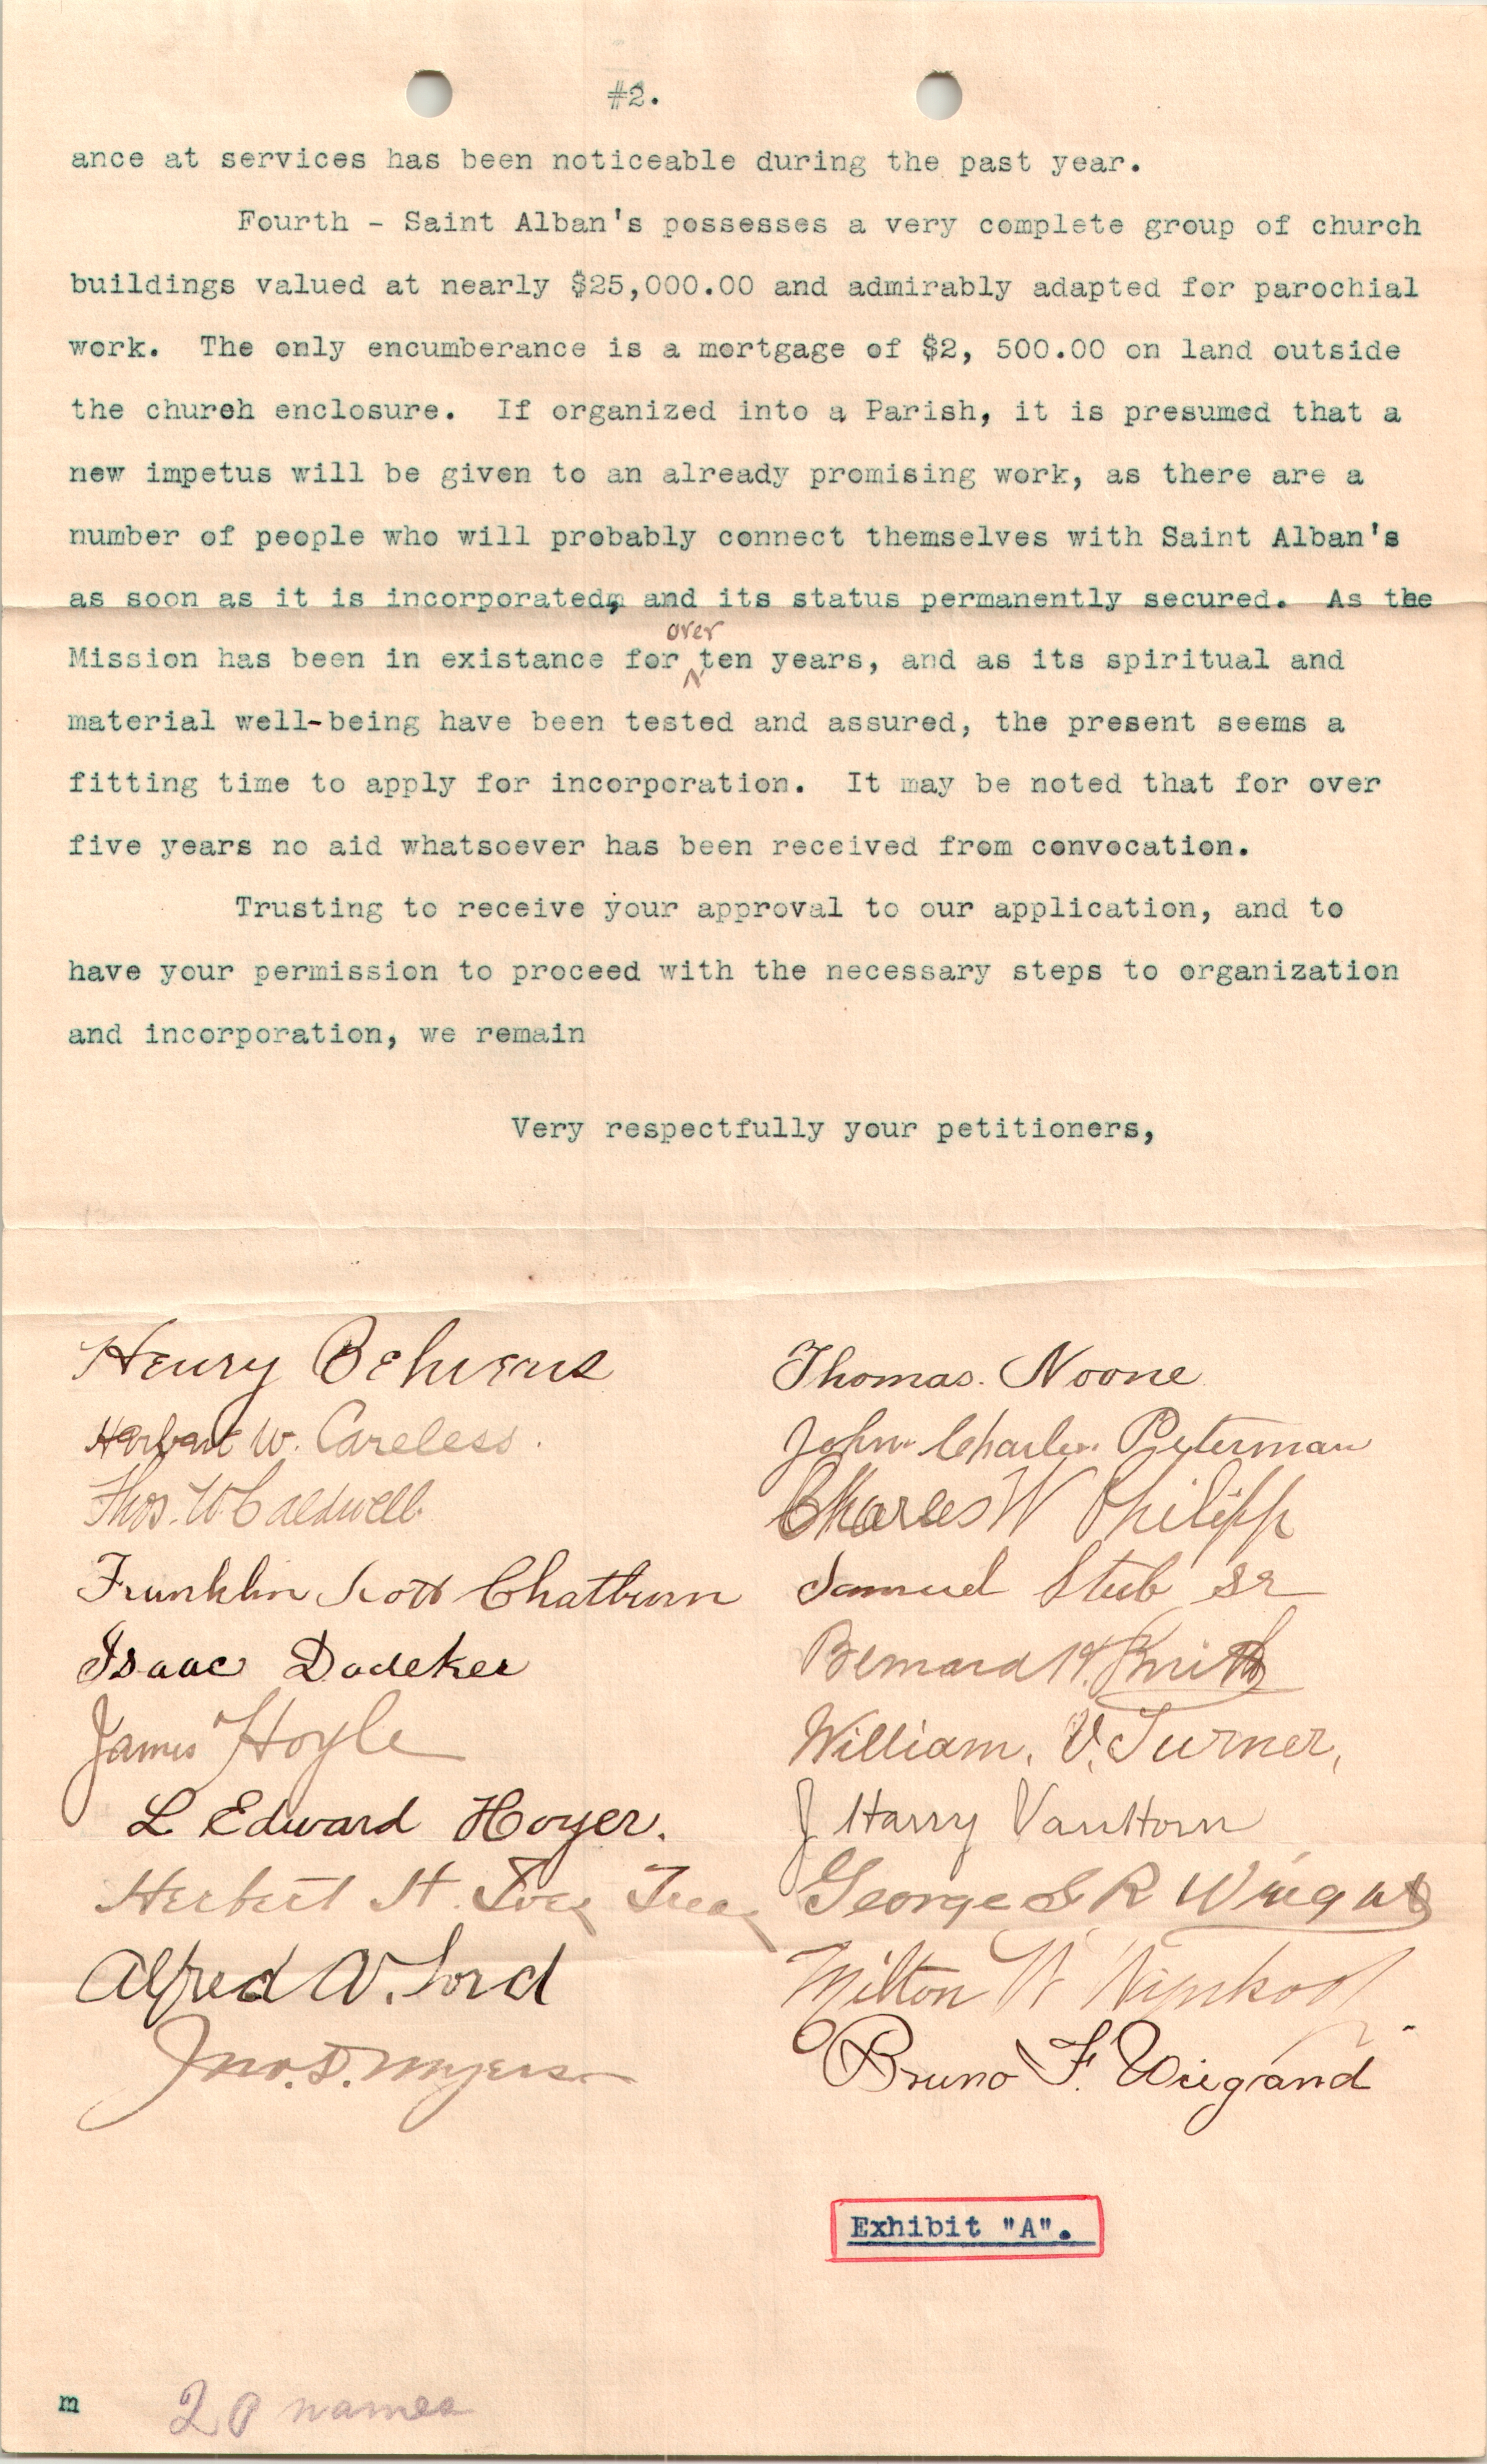 #2.
ance at services has been noticeable during the past year.
Fourth - Saint Alban's possesses a very complete group of church
buildings valued at nearly $25,000.00 and admirably adapted for parochial
work. The only encumberance is a mortgage of $2, 500.00 on land outside
the church enclosure. If organized into a Parish, it is presumed that a
new impetus will be given to an already promising work, as there are a
number of people who will probably connect themselves with Saint Alban's
as soon as it is incorporated, and its status permanently secured. As the
over
Mission has been in existance for ten years, and as its spiritual and
material well-being have been tested and assured, the present seems a
fitting time to apply for incorporation. It may be noted that for over
five years no aid whatsoever has been received from convocation.
Trusting to receive your approval to our application, and to
have your permission to proceed with the necessary steps to organization
and incorporation, we remain
Very respectfully your petitioners,
Henry Behrens
Herbert W. Careless.
Thos. W. Caldwell.
Franklin Scott Chatburn
Isaac Dadeker
James Hoyle
L Edward Hoyer.
Herbert H.
Alfred W. Lord
Jno. S. Myers
Thomas. Noone
John Charles Peterman
Charles W Philipp
Samuel Stub Sr
Bernard H. Smith
William. V. Turner,
J Harry VanHorn
George S R Wright
Milton W
Bruno F. Wiegand
Exhibit "A".
m
20 names